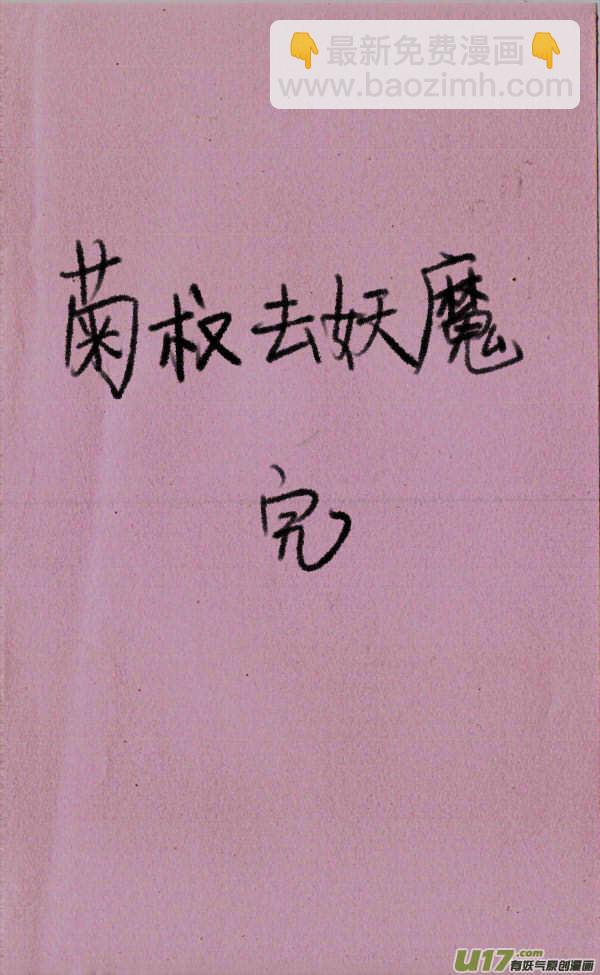 👇最新免费漫画👇
www.baozimh.com
菊叔去妖魔
完
U17.com
有妖气原创漫画